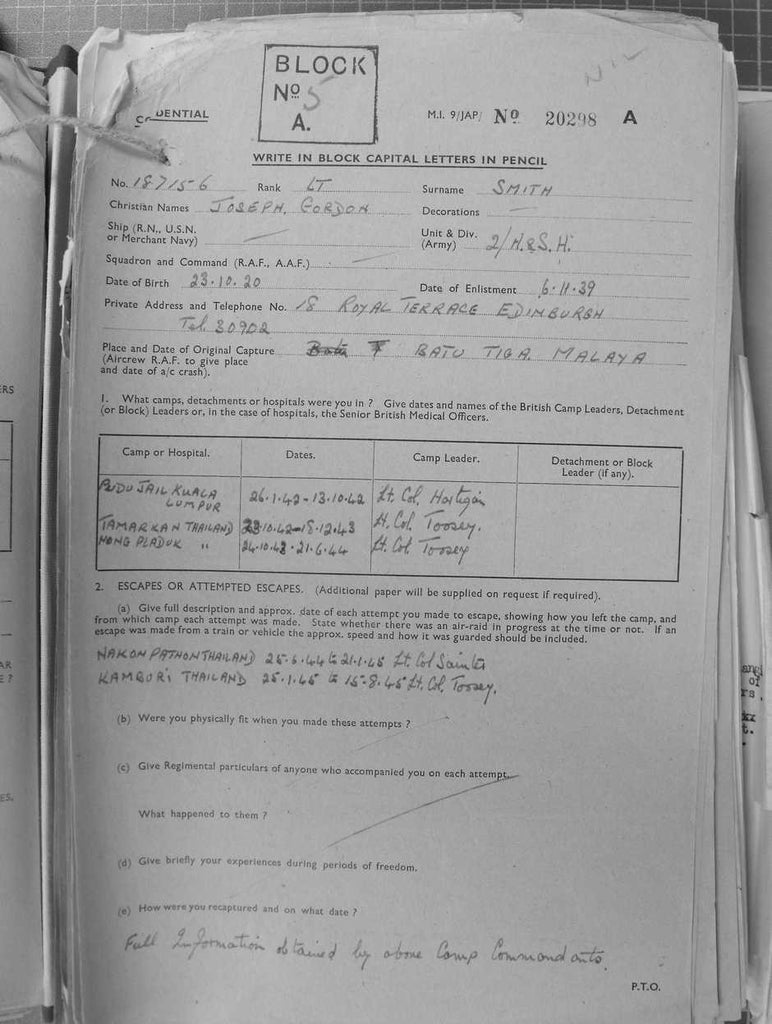 BLOCK
No 5
A.
DENTIAL
M.I. 9/JAP/ No 20298 A
NIL
WRITE IN BLOCK CAPITAL LETTERS IN PENCIL
No. 187156 Rank LT Surname SMITH
Christian Names JOSEPH, GORDON Decorations —
Ship (R.N., U.S.N.
or Merchant Navy) —
Unit & Div.
(Army) 2/A.&S.H.
Squadron and Command (R.A.F., A.A.F.) —
Date of Birth 23.10.20 Date of Enlistment 6.11.39
Private Address and Telephone No. 18 ROYAL TERRACE EDINBURGH
Tel. 30902
Place and Date of Original Capture BATU TIGA. MALAYA
(Aircrew R.A.F. to give place
and date of a/c crash).
1. What camps, detachments or hospitals were you in ? Give dates and names of the British Camp Leaders, Detachment
(or Block) Leaders or, in the case of hospitals, the Senior British Medical Officers.
Camp or Hospital. Dates. Camp Leader. Detachment or Block
Leader (if any).
PUDU JAIL KUALA
LUMPUR 26.1.42-13.10.42 Lt. Col. Hartigan
TAMARKAN THAILAND 23.10.42-18.12.43 Lt. Col. Toosey.
NONG PLADUK " 24.10.43-21.6.44 Lt. Col Toosey
2. ESCAPES OR ATTEMPTED ESCAPES. (Additional paper will be supplied on request if required).
(a) Give full description and approx. date of each attempt you made to escape, showing how you left the camp, and
from which camp each attempt was made. State whether there was an air-raid in progress at the time or not. If an
escape was made from a train or vehicle the approx. speed and how it was guarded should be included.
NAKON PATHON THAILAND 25-6-44 to 21-1-45 Lt Col Sainter
KAMBURI THAILAND 25.1.45 to 15-8-45 Lt. Col. Toosey.
(b) Were you physically fit when you made these attempts ?
(c) Give Regimental particulars of anyone who accompanied you on each attempt.
What happened to them ?
(d) Give briefly your experiences during periods of freedom.
(e) How were you recaptured and on what date ?
Full Information obtained by above Camp Commandants.
P.T.O.